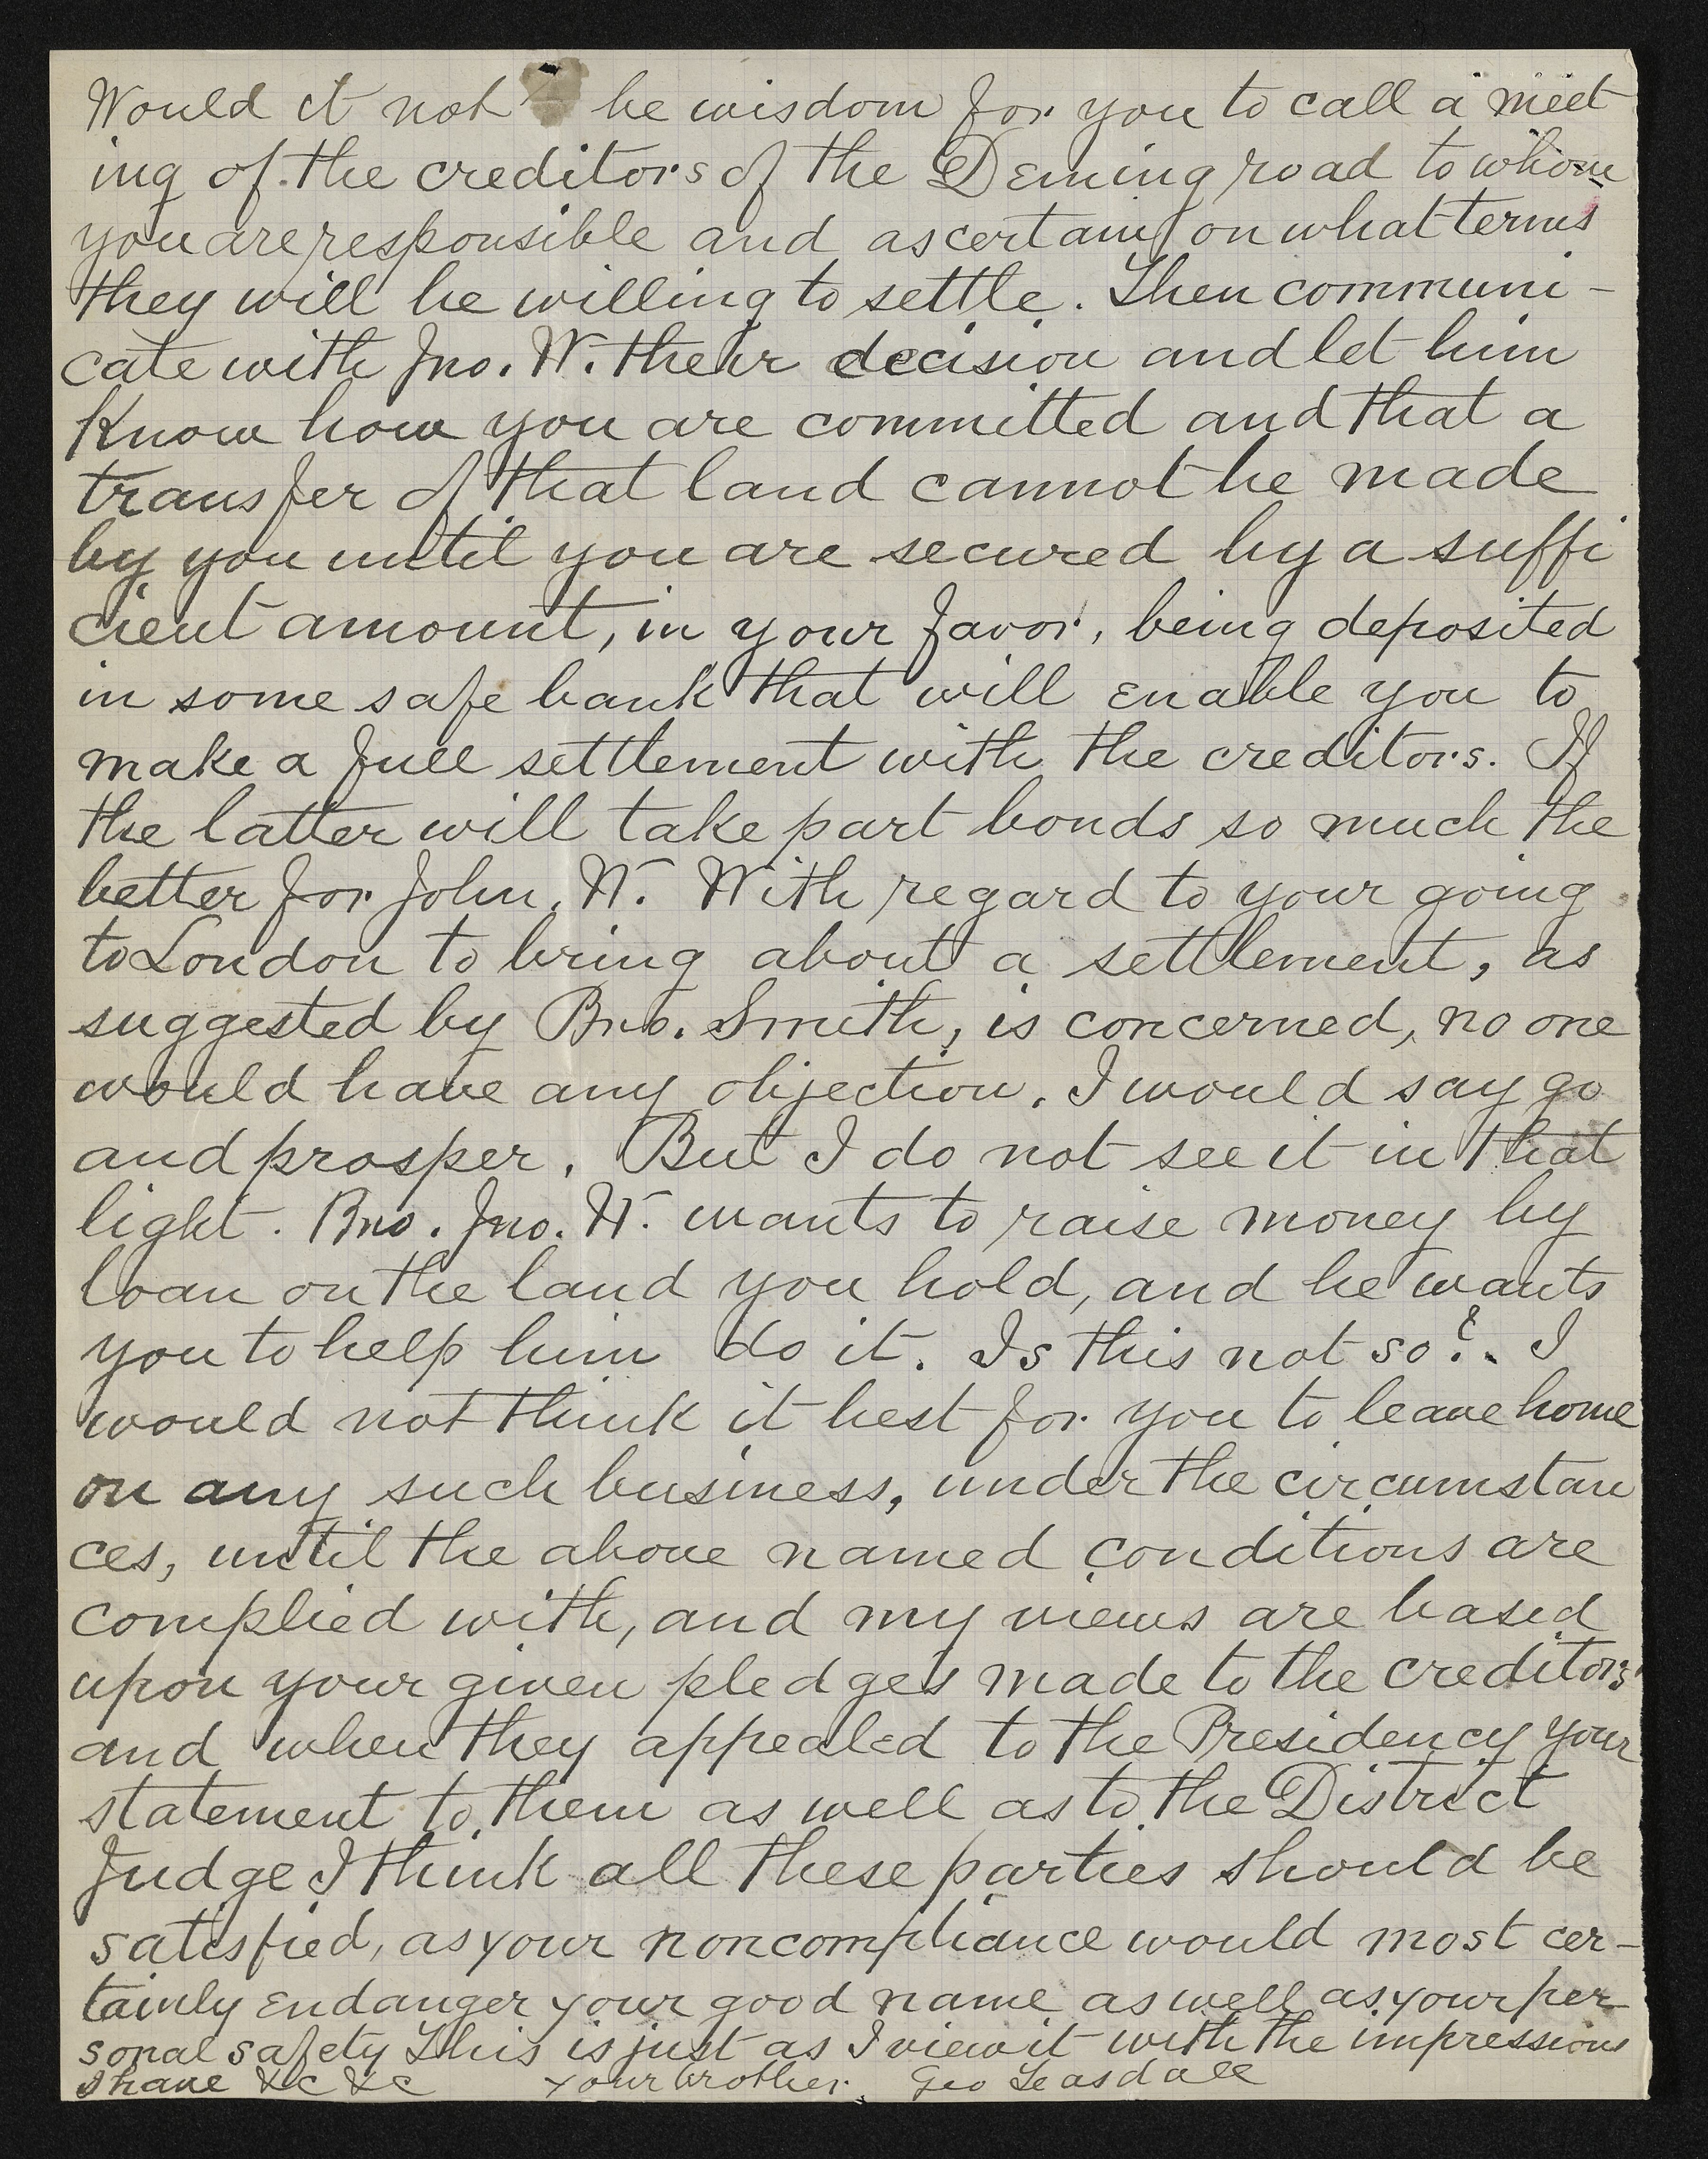 Would it not be wisdom for you to call a meet
ing of the creditors of the Deming road to whom
you are responsible and ascertain on what terms
they will be willing to settle. Then communi-
cate with Jno. W. their decision and let him
Know how you are committed and that a
transfer of that land cannot be made
by you until you are secured by a suffi
cient amount, in your favor, being deposited
in some safe bank that will enable you to
make a full settlement with the creditors. If
the latter will take part bonds so much the
better for John. W. With regard to your going
to London to bring about a settlement, as
suggested by Bro. Smith, is concerned, no one
would have any objection. I would say go
and prosper. But I do not see it in that
light. Bro. Jno. W. wants to raise money by
loan on the land you hold, and he wants
you to help him do it. Is this not so? I
would not think it best for you to leave home
on any such business, under the circumstan
ces, until the above named conditions are
complied with, and my views are based
upon your given pledges made to the creditors
and when they appealed to the Presidency your
statement to them as well as to the District
Judge I think all these parties should be
satisfied, as your noncompliance would most cer-
tainly endanger your good name as well as your per-
sonal safety This is just as I view it with the impressions
I have &c &c your brother. Geo Teasdale